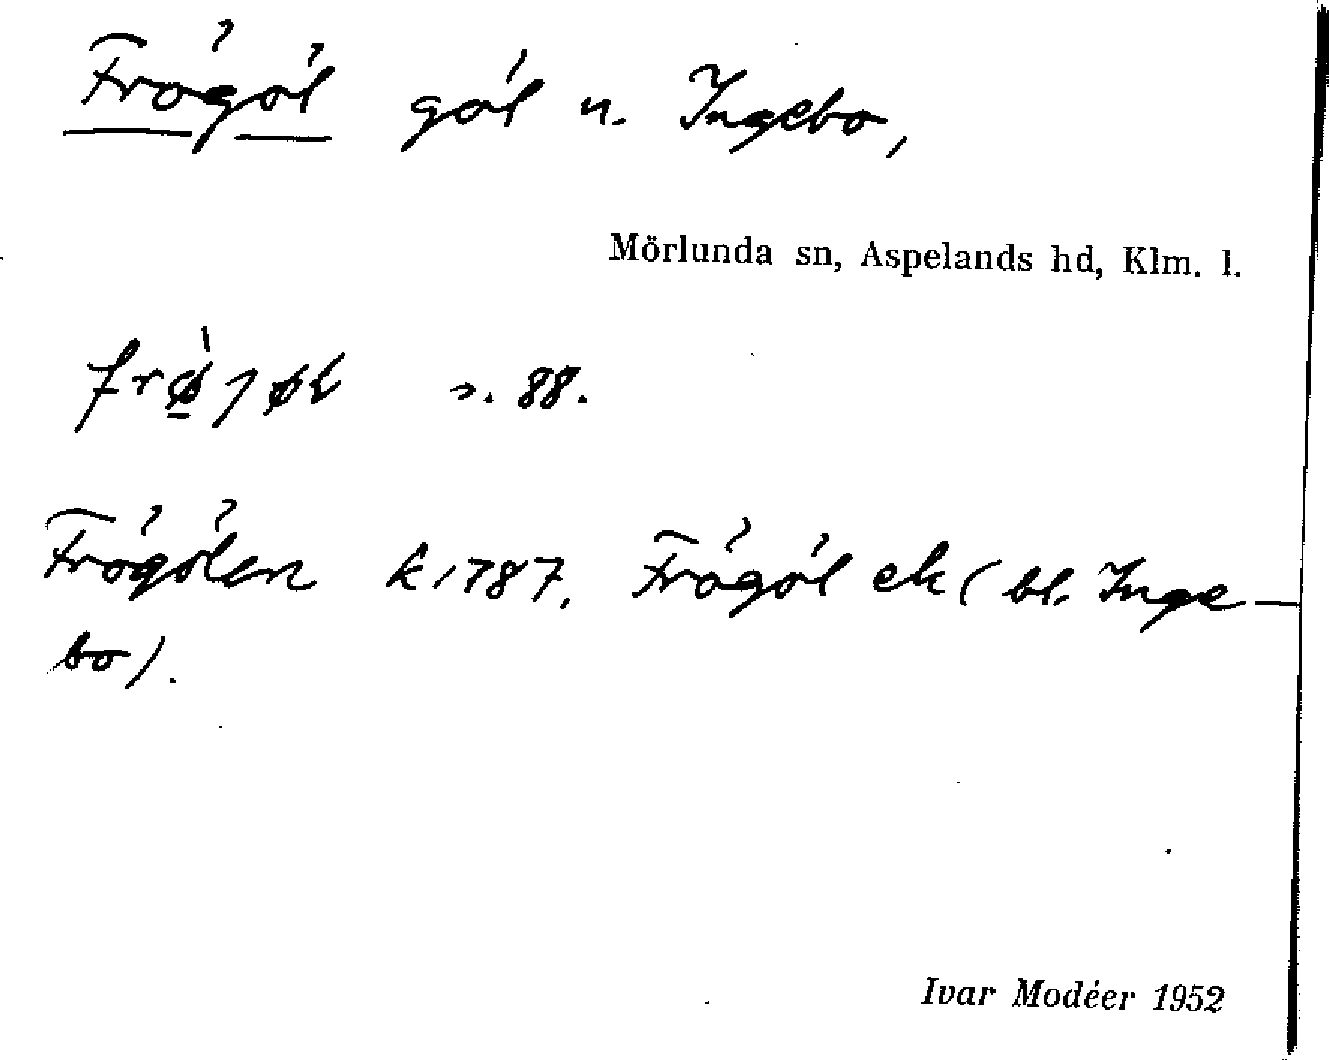 Frögöl göl n. Ingebo,
Mörlunda sn, Aspelands hd, Klm. l.
s. 88.
Frögölen k 1787, Frögöl ek (bl. Inge-
bo).
Ivar Modéer 1952